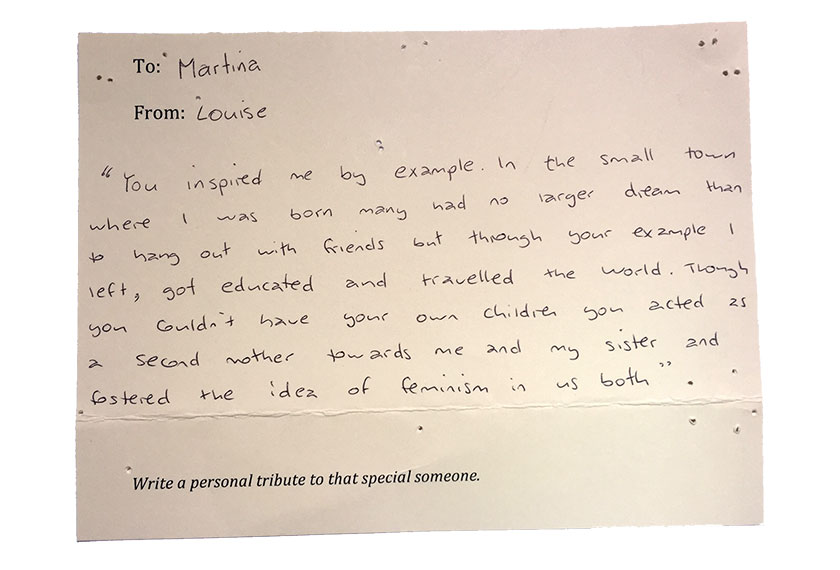 To: Martina
From: Louise
"You inspired me by example. In the small town
where I was born many had no larger dream than
to hang out with friends but through your example I
left, got educated and travelled the world. Though
you couldn't have your own children you acted as
a second mother towards me and my sister and
fostered the idea of feminism in us both".
Write a personal tribute to that special someone.